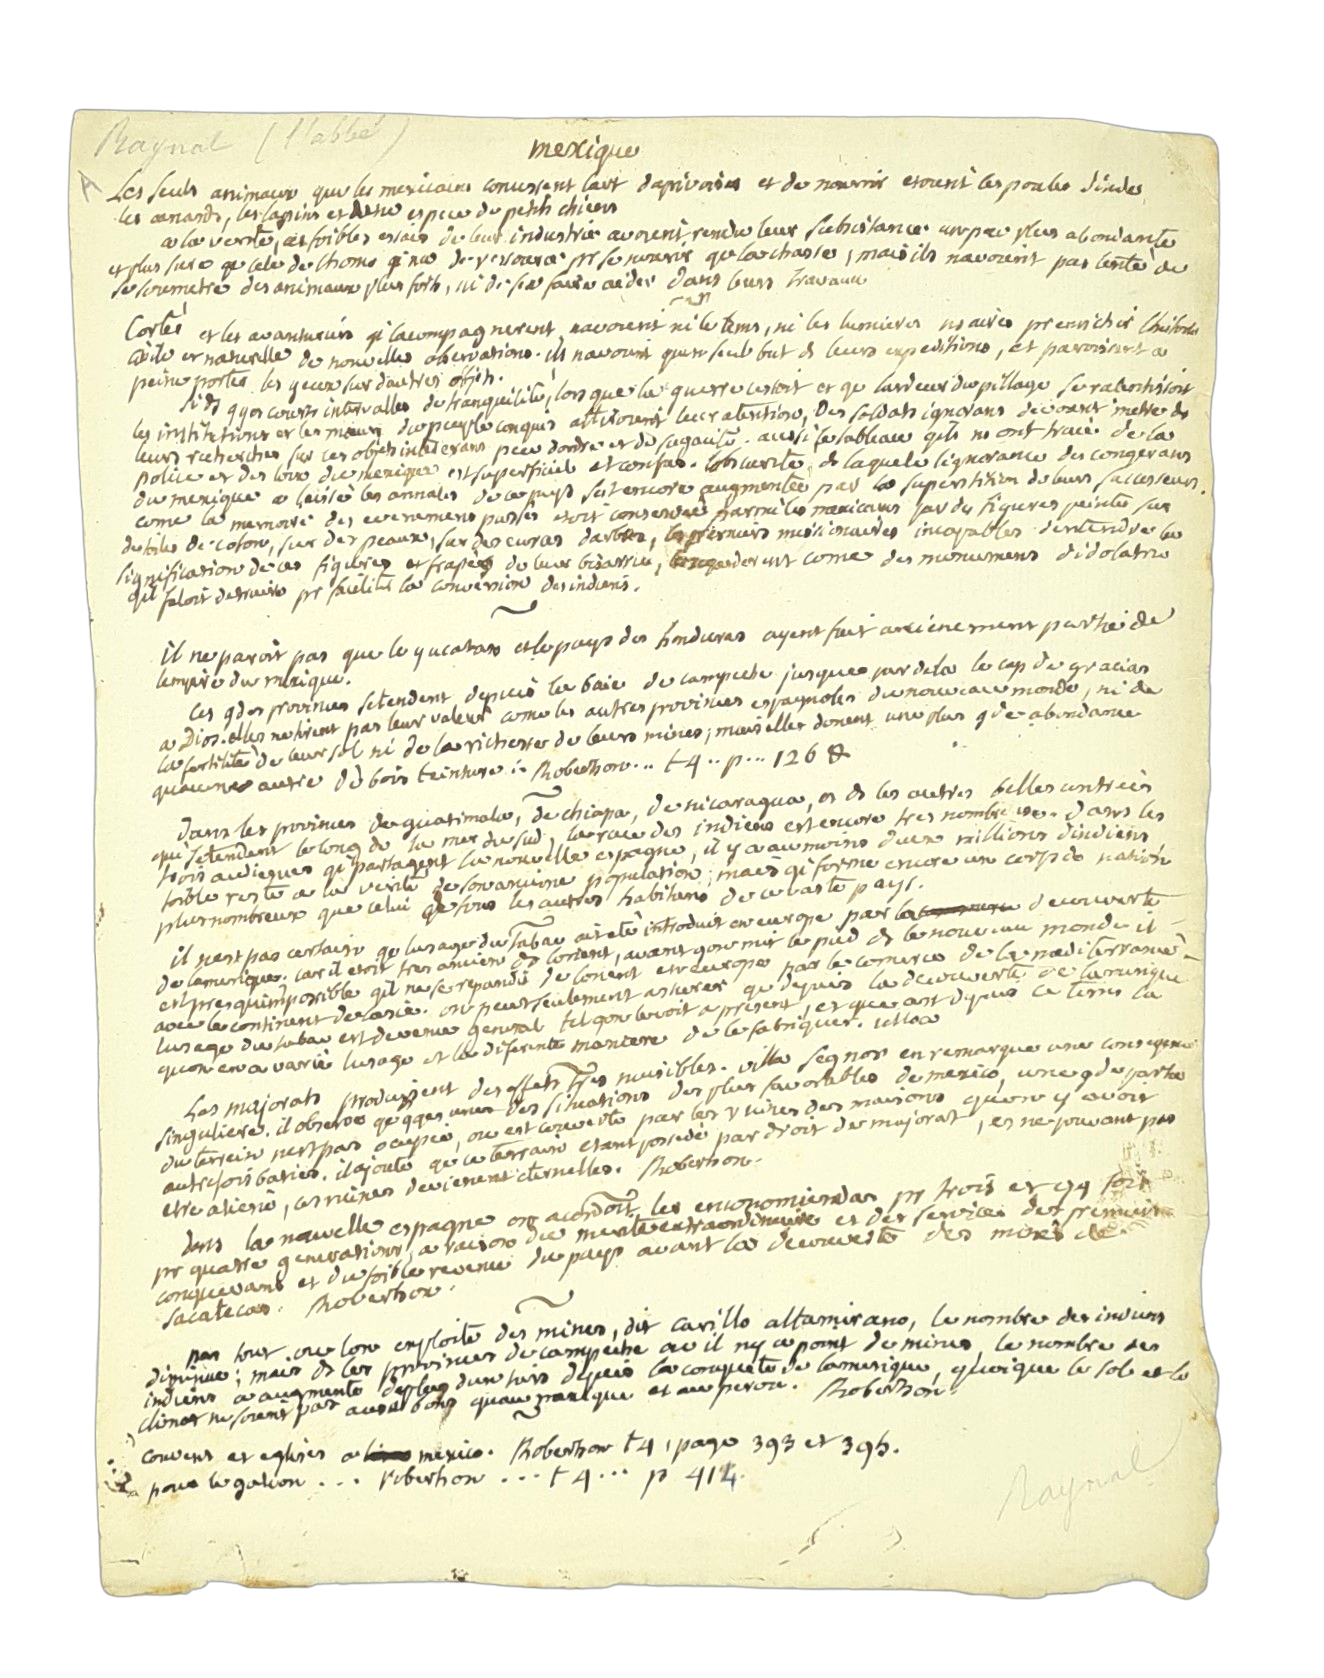 Raynal (l'abbé)
mexique
Les seuls animaux que les mexicains conussent lart daprivoiser et de nourrir etoient les poules dindes,
les canards, les lapins et une espece de petits chiens
a la verité, ces foibles essais de leur industrie avoient rendu leur subsistance un peu plus abondante
et plus sure que cele de lhome qi na de ressource pr se nourir que la chasse, mais ils navoient pas tenté de
se soumetre des animaux plus forts, ni de sen faire aider dans leurs travaux
Cortés et les avanturiers qi lacompagnerent navoient ni le tems, ni les lumieres nsaires pr enrichir lhistoire
civile et naturelle de nouvelles observations. ils navoient quun seul but ds leurs expeditions, et paroissent a
peine portés les yeux sur dautres objets.
si ds qqes courts intervalles de tranquilité, lors que la guerre cessoit et qe lardeur du pillage se ralentissoit
les institutions et les mœurs du peuple conquis attiroient leur atention, des soldats ignorans devoient metre ds
leurs recherches sur ces objets interesans peu dordre et de sagacité. aussi le tableau qils ns ont tracé de la
police et des loix du mexique est superficiel et confus. lobscurité ds laquele lignorance des conqerans
du mexique a laissé les annales de ce pays sest encore augmentée par la superstition de leurs successeurs.
come la memoire des evenemens passés etoit conservée parmi les mexicains par des figures peintes sur
des toiles de coton, sur des peaux, sur des ecorces darbres, les premiers missionaires incapables dentendre la
signification de ces figures et frapés de leur bisarrerie, les regarderent come des monumens didolatrie
qil faloit detruire pr faciliter la conversion des indiens.
il ne paroit pas que le yucatan et le pays des honduras ayent fait anciènement partie de
lempire du mexique.
Ces gdes provinces setendent depuis la baie de campeche jusques par dela le cap de gracias
a Dios. elles ne tirent pas leur valeur come les autres provinces espagnoles du nouveau monde, ni de
la fertilité de leur sol ni de la richesse de leurs mines; mais elles donent une plus gde abondance
quaucune autre de bois teinture. Robertson... t 4.. p... 126 &
dans les provinces de guatimala, de chiapa, de nicaragua, et ds les autres belles contrées
qui setendent le long de la mer du sud, la race des indiens est encore tres nombreuse. dans les
trois audiences qi partagent la nouvelle espagne, il y a au moins deux millions dindiens
foible reste a la verité de son anciene population; mais qi forme encore un corps de nation
plus nombreux que celui de tous les autres habitans de ce vaste pays.
il nest pas certain qe lusage du tabac ait eté introduit en europe par la decouverte
de lamerique. car il etoit tres ancien ds lorient, avant qon mit le pied ds le nouveau monde il
est presquimpossible qil ne se repandit de lorient en europe par le comerce de la mediterranée
avec le continent de lasie. on peut seulement assurer qe depuis la decouverte de lamerique
lusage du tabac est devenu general tel qon le voit a present, et que cest depuis ce tems la
quon en a varié lusage et la diferente maniere de le fabriquer. ulloa
Les majorats produisent des effets tres nuisibles. villa segnor en remarque une conseqence
singuliere. il observe qe qqes unes des situations des plus favorables de mexico, une gde partie
du terrein nest pas ocupée, ou est couverte par les ruines des maisons quon y avoit
autrefois baties. il ajoute qe ce terrain etant possedé par droit de majorat, et ne pouvant pas
etre aliené, ces ruines devienent eternelles. Robertson.
dans la nouvelle espagne on acordoit les encomiendas pr trois et qq fois
pr quatre generations, a raison du merite extraordinaire et des services des premiers
conquerans et du foible revenu du pays avant la decouverte des mines de
sacatecas. Robertson.
par tout ou lon exploite des mines, dit carillo altamirano, le nombre des indiens
diminue; mais ds les provinces de campeche ou il ny a point de mines, le nombre des
indiens a augmenté de plus dun tiers depuis la conquete de lamerique, quoique le sol et le
climat ne soient pas aussi bons quau mexique et au perou. Robertson.
couvens et eglises a mexico. Robertson t 4, page 393 et 395.
pour le galion... robertson... t 4... p 414.
Raynal